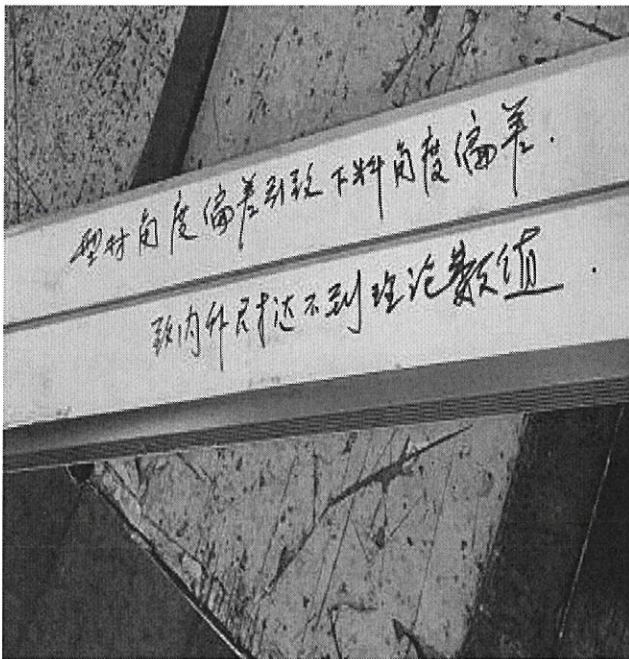 型材角度偏差引致下料角度偏差.
致内外尺寸达不到理论数值.